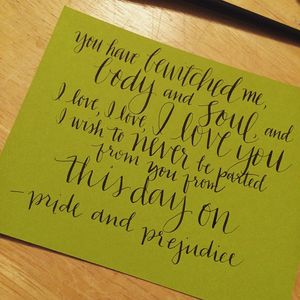 you have bewitched me,
body and soul, and
I love, I love, I love you
I wish to never be parted
from you from
this day on
-pride and prejudice